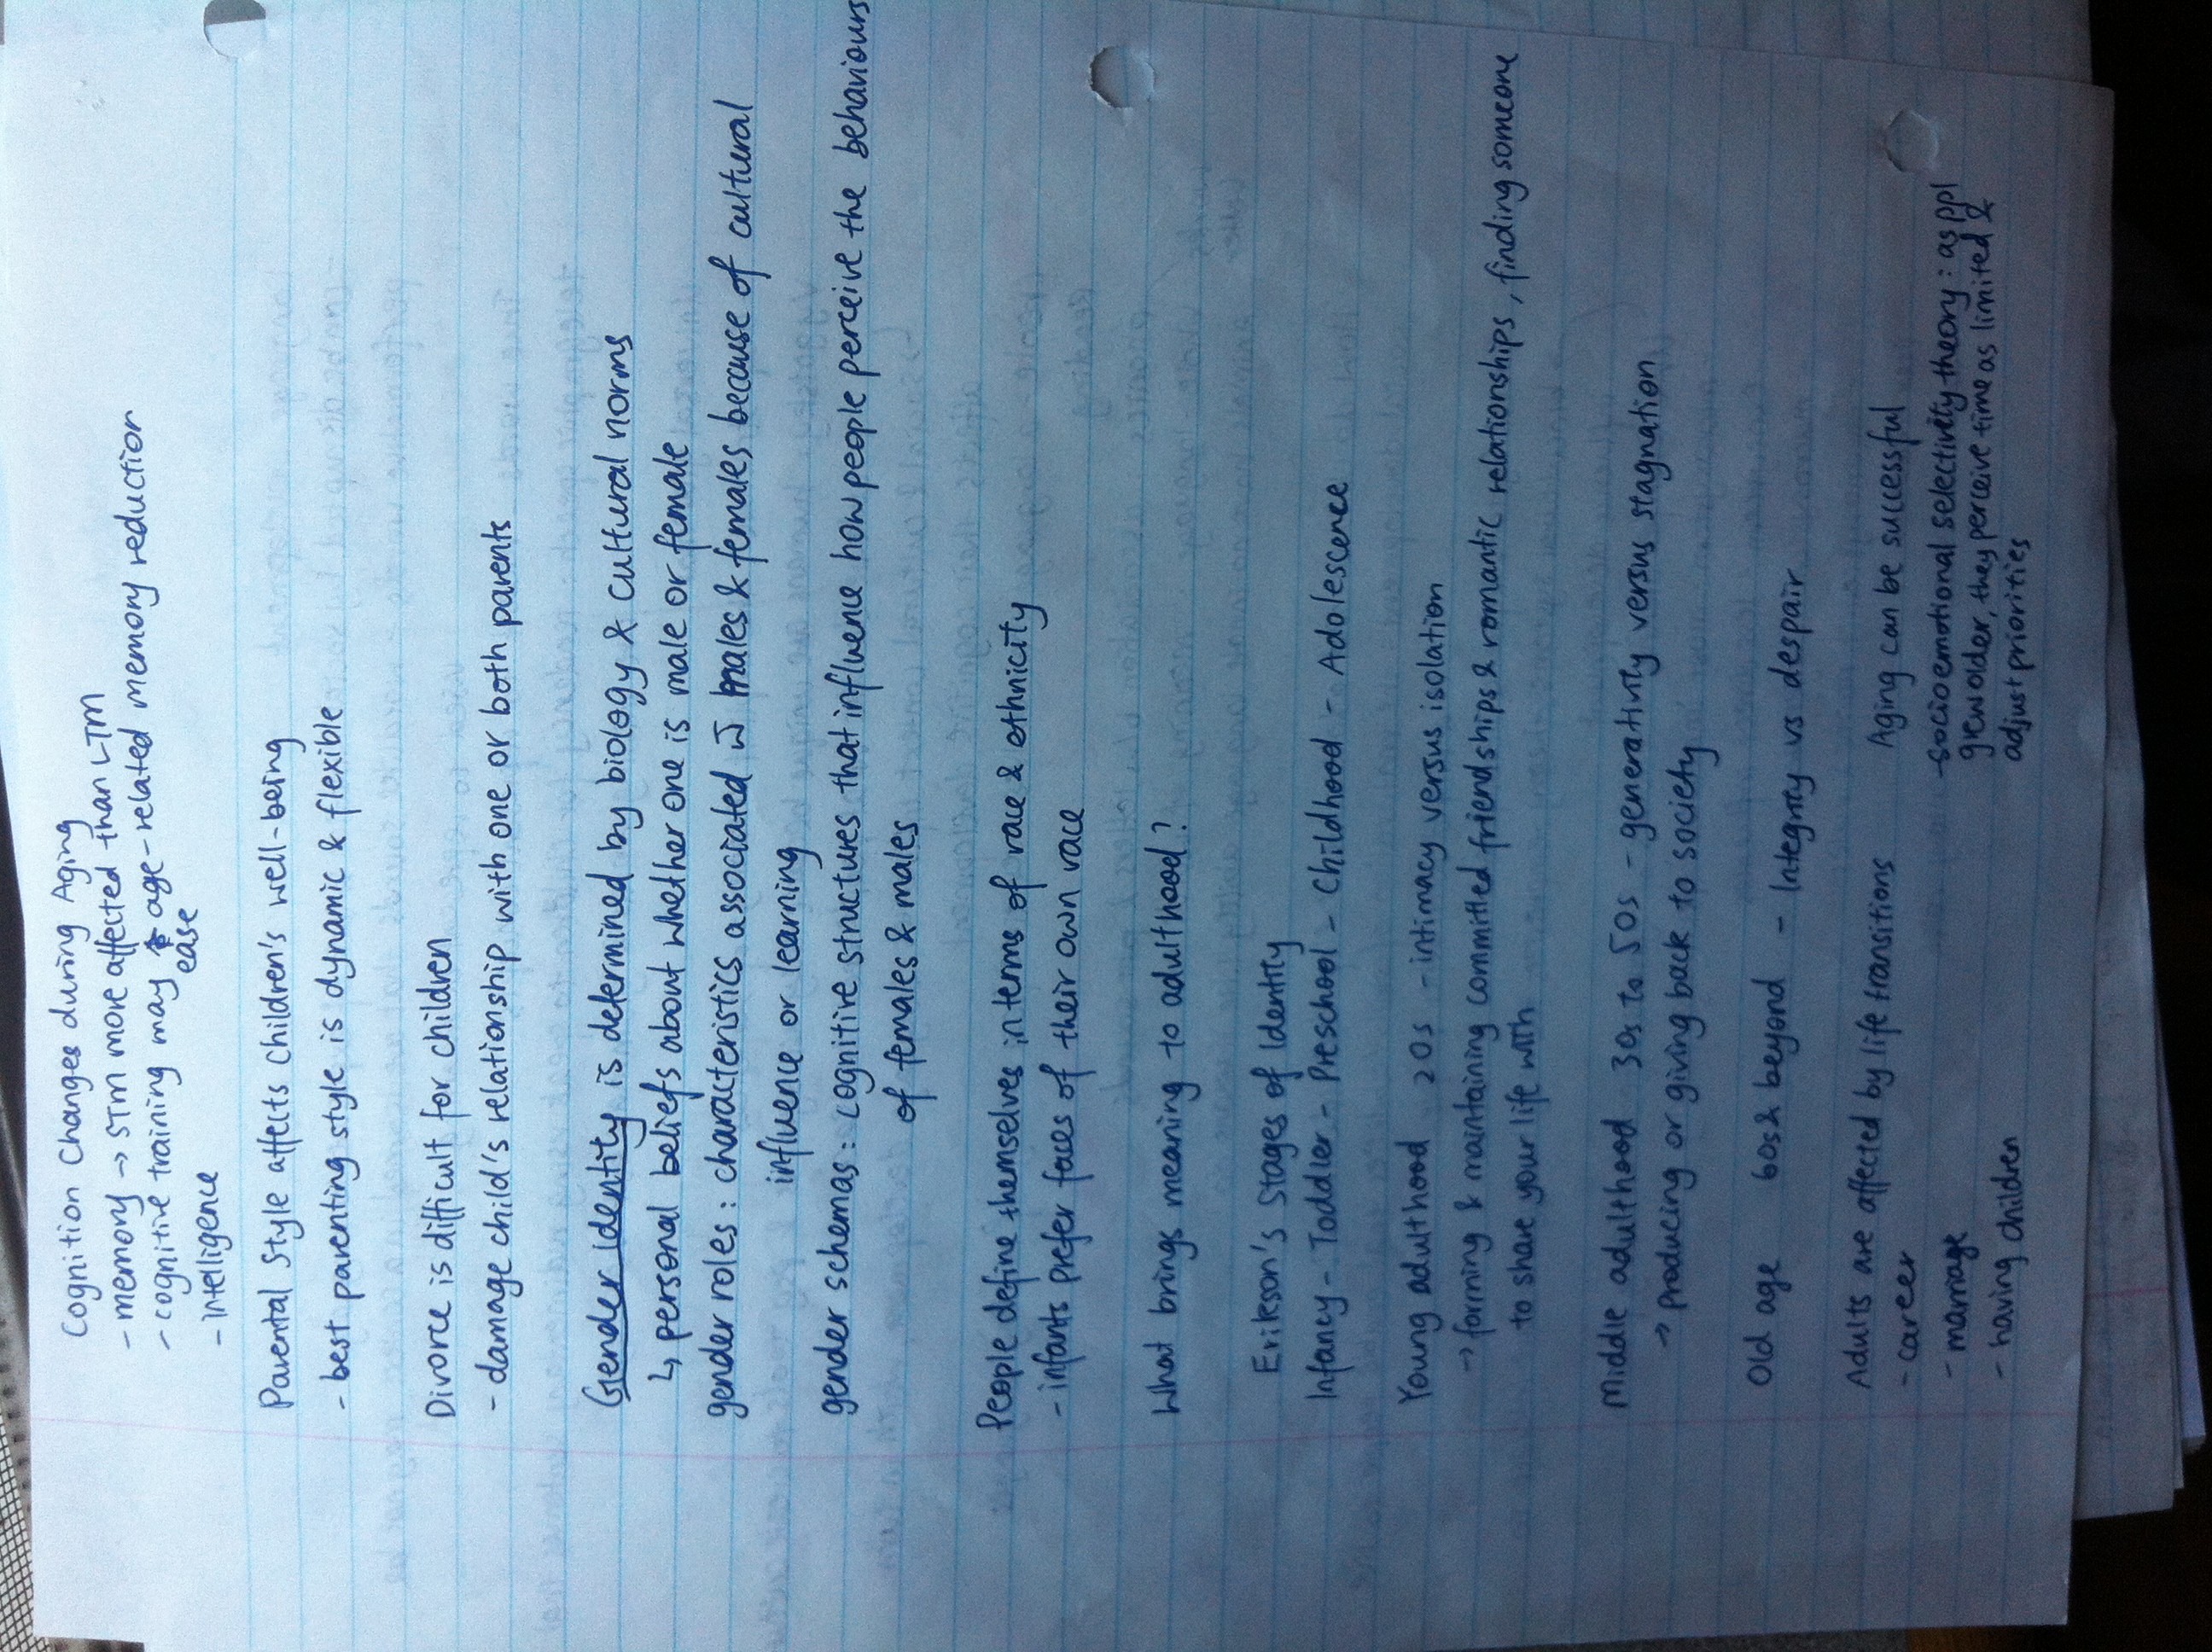 Cognition Changes during Aging
- memory → STM more affected than LTM
- cognitive training may age-related memory reduction
ease
- intelligence
Parental Style affects children's well-being
- best parenting style is dynamic & flexible
Divorce is difficult for children
- damage child's relationship with one or both parents
Gender identity is determined by biology & cultural norms
↳ personal beliefs about whether one is male or female
gender roles: characteristics associated w males & females because of cultural
influence or learning
gender schemas: cognitive structures that influence how people perceive the behaviours
of females & males
People define themselves in terms of race & ethnicity
- infants prefer faces of their own race
What brings meaning to adulthood?
Erikson's Stages of Identity
Infancy - Toddler - Preschool - Childhood - Adolescence
Young adulthood 20s - intimacy versus isolation
→ forming & maintaining committed friendships & romantic relationships, finding someone
to share your life with
Middle adulthood 30s to 50s - generativity versus stagnation
→ producing or giving back to society
Old age 60s & beyond - Integrity vs despair
Adults are affected by life transitions
- career
- marriage
- having children
Aging can be successful
- socioemotional selectivity theory: as ppl
grew older, they perceive time as limited &
adjust priorities